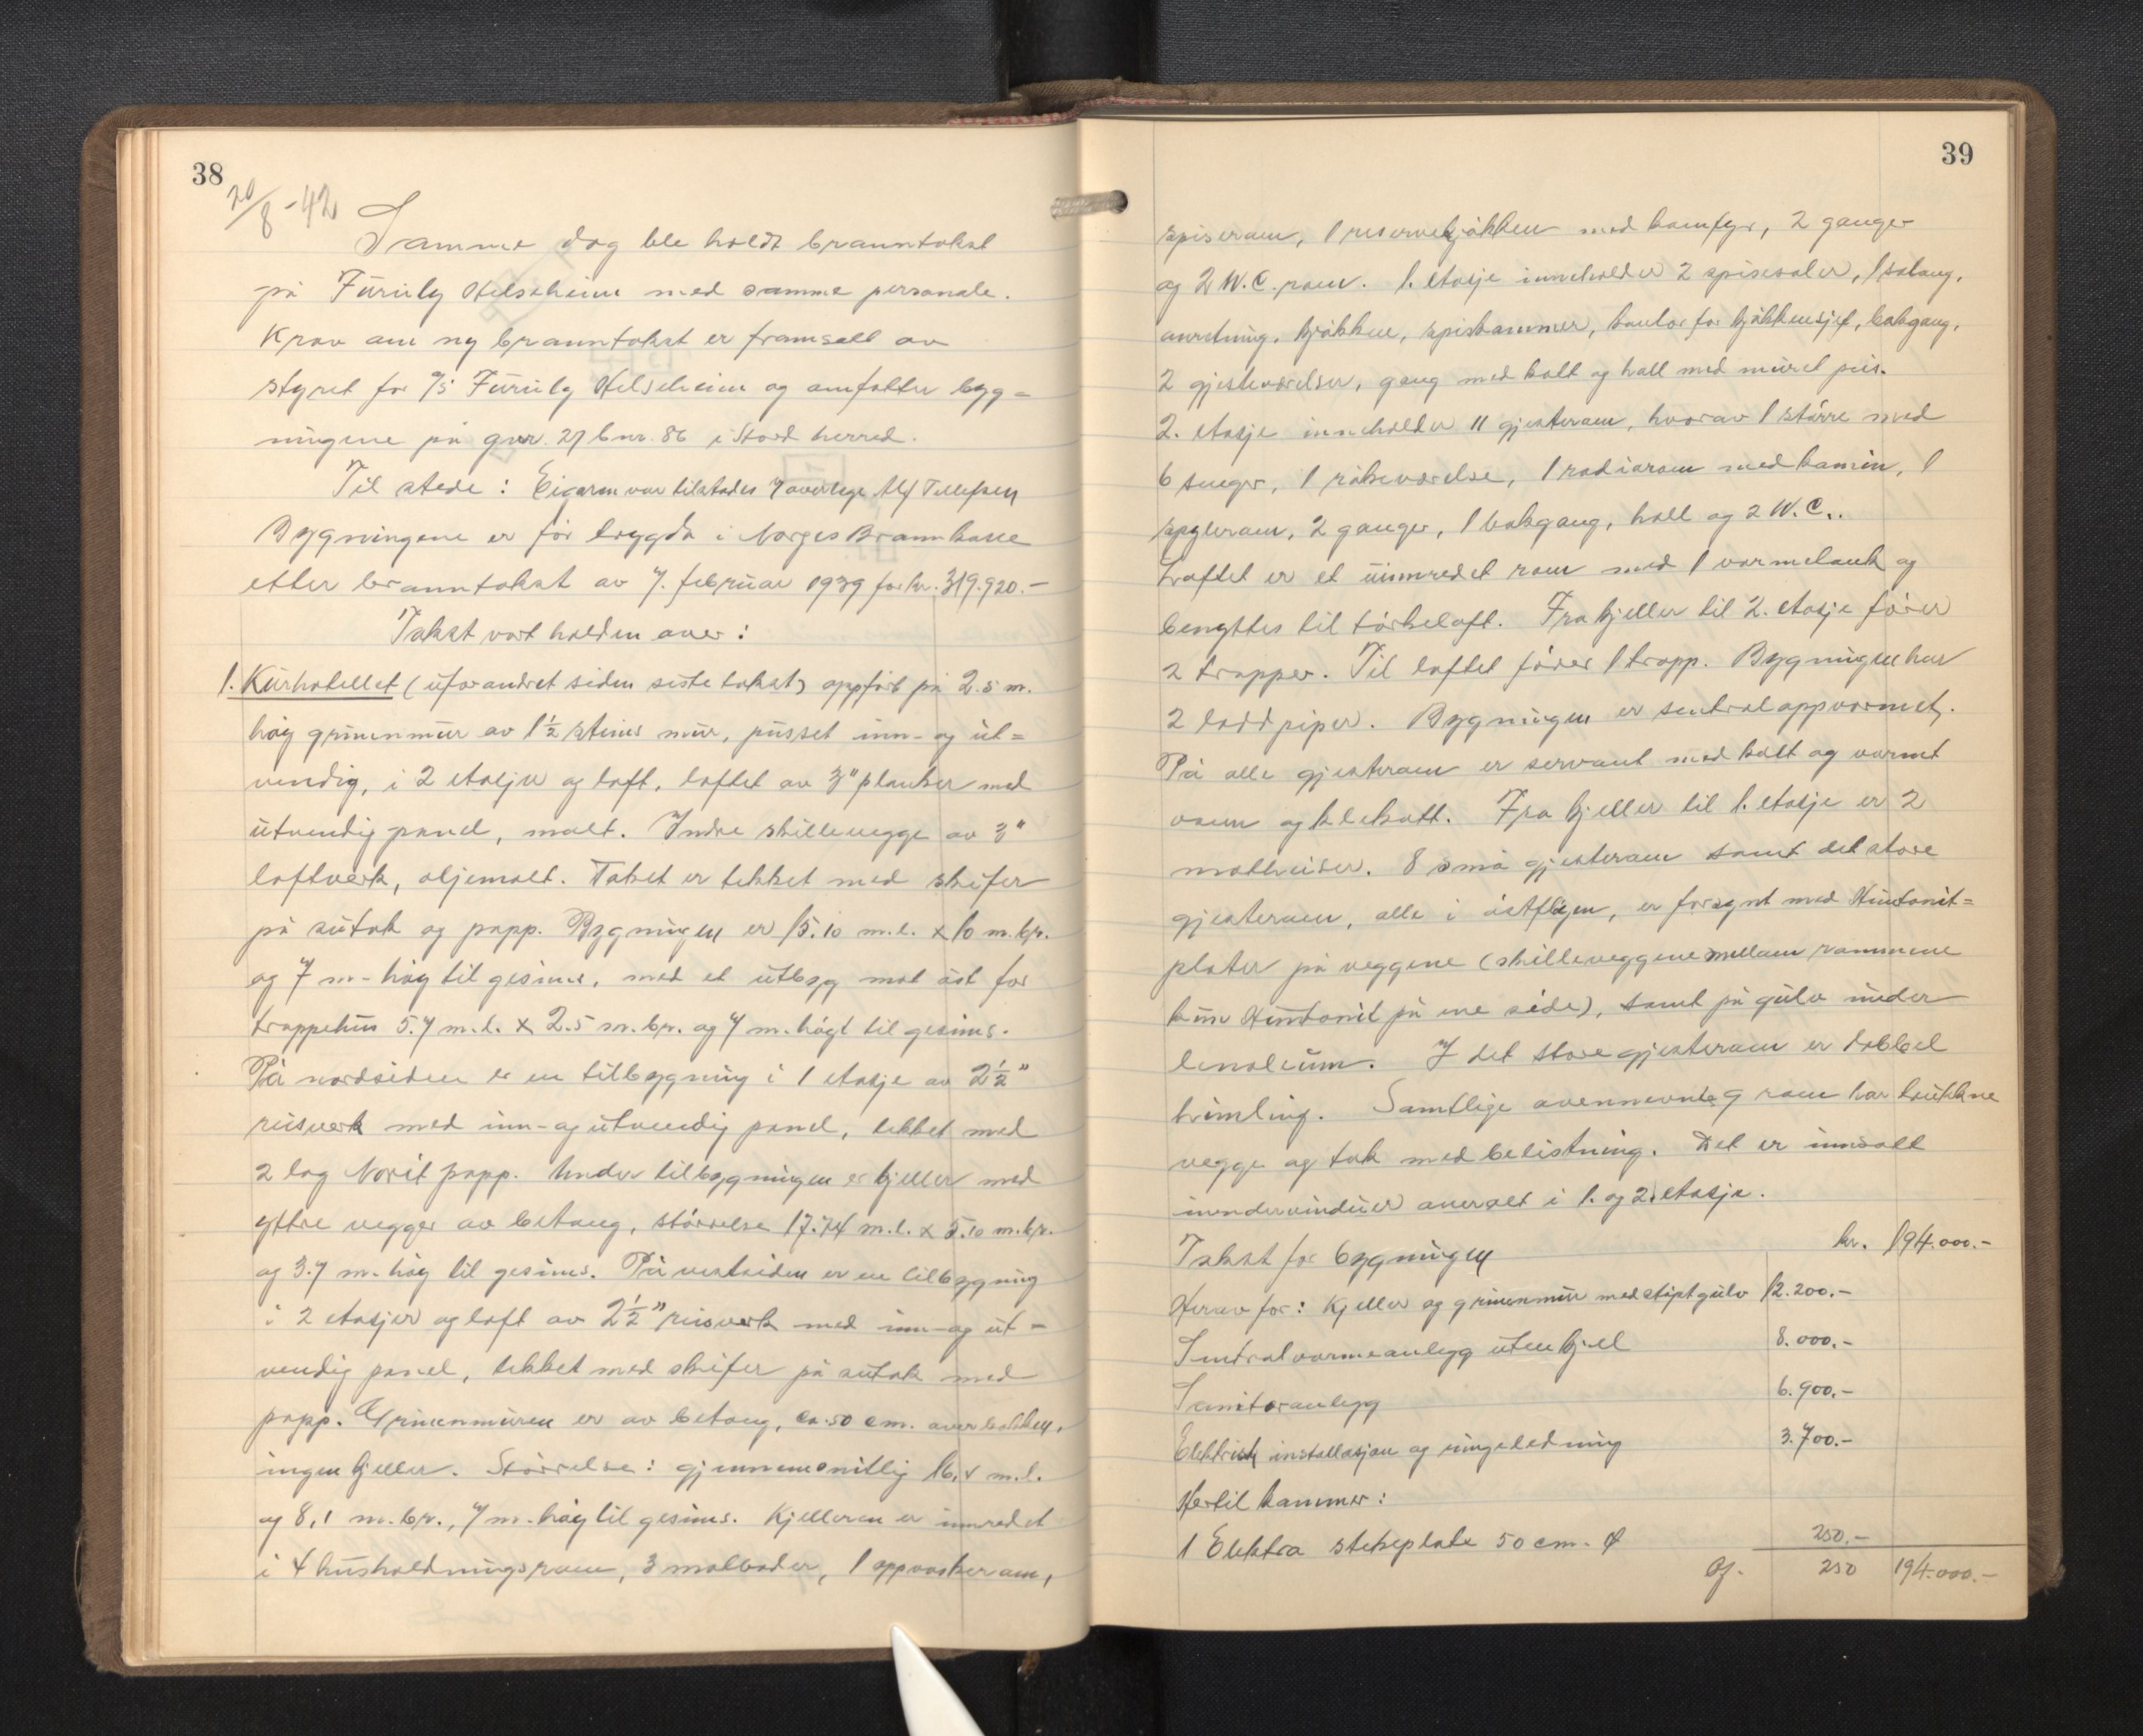 38
20/8-42
Samme dag ble holdt branntakst
på Furuly Helseheim med samme personale.
Krav om ny branntakst er framsatt av
styret for A/S Furuly Helseheim og omfatter byg=
ningene på gnr. 27 bnr. 86 i Stord herred.
Til stede: Eigaren var tilstades v/ overlege Alf Tollefsen
Bygningene er før trygda i Norges Brannkasse
etter branntakst av 7. februar 1939 for kr. 319.920.-
Takst vart halden over:
1. Kurhotellet (uforandret siden siste takst) oppført på 2.5 m.
høg grunnmur av 1½ steins mur, pusset inn- og ut=
vendig, i 2 etasjer og loft, loftet av 3" planker med
utvendig panel, malt. Indre skillevegge av 3"
loftverk, oljemalt. Taket er tekket med skifer
på sutak og papp. Bygningen er 15.10 m.l. x 10 m.br.
og 7 m- høg til gesims, med et utbyg mot øst for
trappehus 5.7 m.l. x 2.5 m.br. og 7 m. høgt til gesims.
På nordsiden er en tilbygning i 1 etasje av 2½"
reisverk med inn- og utvendig panel, tekket med
2 lag Norit papp. Under tilbygningen er kjeller med
yttre vegger av betong, størrelse 17.74 m.l. x 5.10 m.br.
og 3.7 m- høg til gesims. På vestsiden er en tilbygning
i 2 etasjer og loft av 2½" reisverk med inn- og ut-
vendig panel, tekket med skifer på sutak med
papp. Grunnmuren er av betong, ca. 50 cm. over bakken,
ingen kjeller. Størrelse: gjennemsnitlig 16,4 m.l.
og 8,1 m.br., 7 m- høg til gesims. Kjelleren er innredet
i 4 husholdningsrom, 3 matboder, 1 oppvaskerom,
39
spiserom, 1 reservekjøkken med komfyr, 2 ganger
og 2 W.C. rom. 1. etasje inneholder 2 spisesaler, 1 salong,
anretning, kjøkken, spiskammer, kontor for kjøkkensjef, bakgang,
2 gjesteværelser, gang med kott og hall med muret peis.
2. etasje inneholder 11 gjesterom, hvorav 1 større med
6 senger, 1 røkeværelse, 1 radiorom med kamin, 1
spylerom, 2 ganger, 1 bakgang, hall og 2 W.C..
Loftet er et uinnredet rom med 1 varmetank og
benyttes til tørkeloft. Fra kjeller til 2. etasje fører
2 trapper. Til loftet fører 1 trapp. Bygningen har
2 loddpiper. Bygningen er sentraloppvarmet.
På alle gjesterom er servant med kalt og varmt
vann og klekott. Fra kjeller til 1. etasje er 2
matheiser. 8 små gjesterom samt det store
gjesterom, alle i østfløyen, er forsynt med Huntonit=
plater på veggene (skilleveggene mellom rommene
kun Huntonit på ene side), samt på gulv under
linoleum. I det store gjesterom er dobbel
himling. Samtlige ovennevnte 9 rom har trukkne
vegge og tak med belistning. Det er innsatt
innervinduer overalt i 1. og 2. etasje.
Takst for bygningen kr. 194.000.-
Herav for: Kjeller og grunnmur med støpt gulv 12.200.-
Sentralvarmeanlegg uten kjel 8.000.-
Sanitæranlegg 6.900.-
Elektrisk installasjon og ringeledning 3.700.-
Hertil kommer:
1 Elektra stekeplate 50 cm. ø 250.-
Of. 250 194.000.-